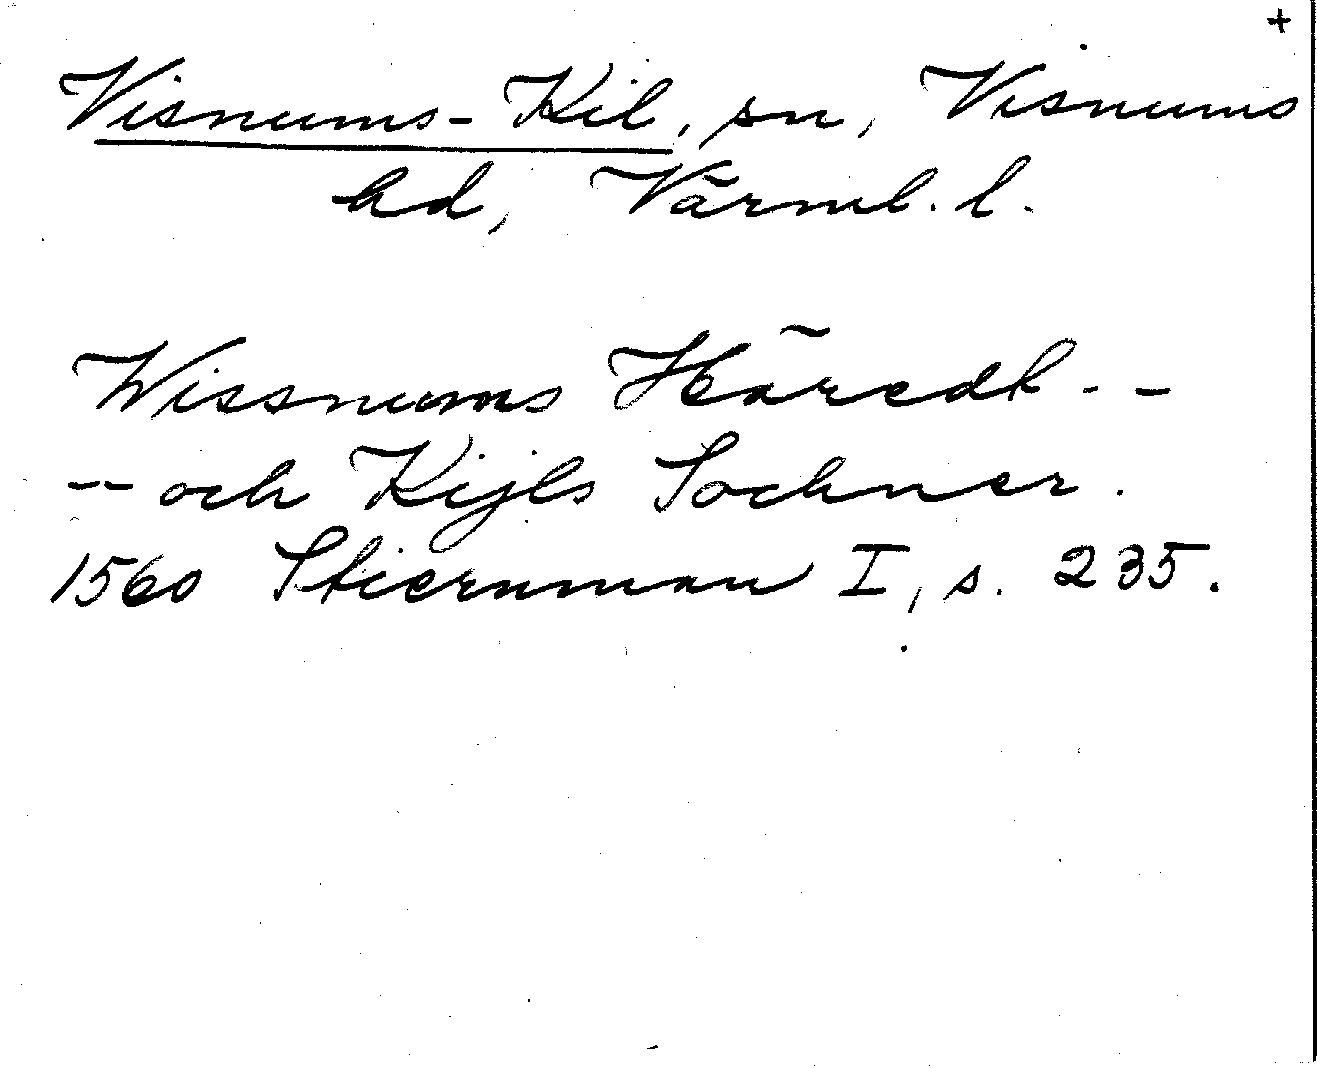 +
Visnums-Kil, sn, Visnums
hd, Värml. l.
Wissnums Häredt - -
-- och Kijls Sochner.
1560 Stiernman I, s. 235.